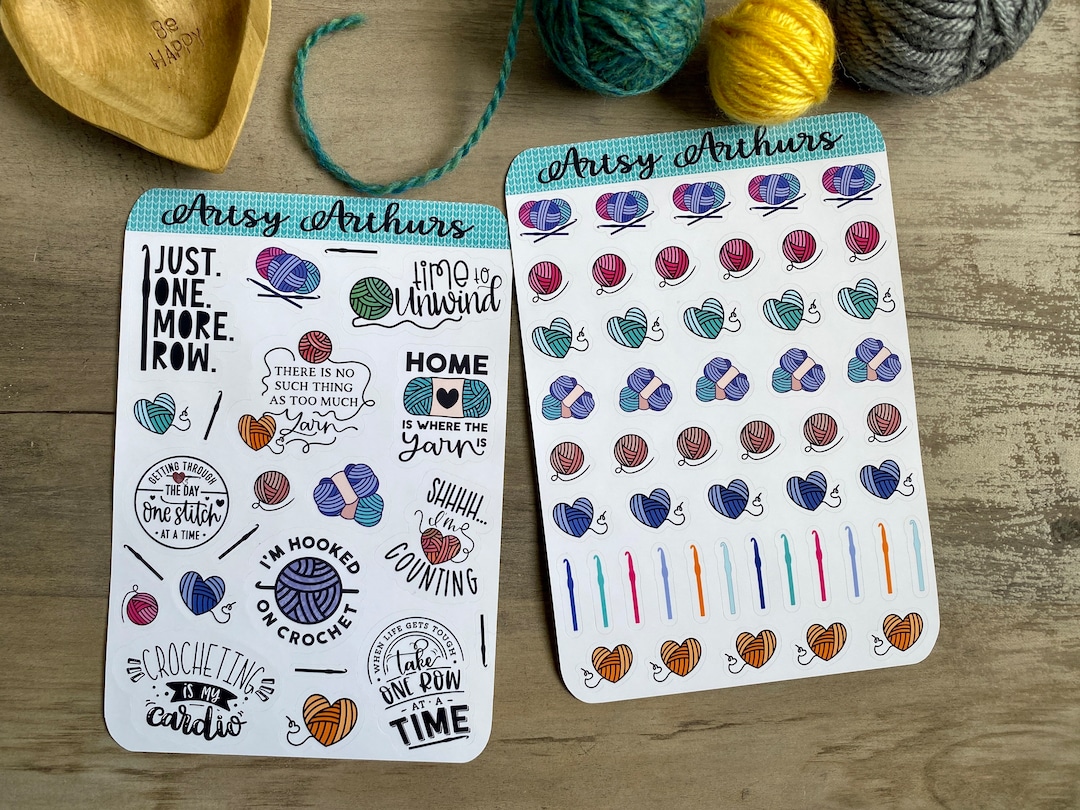 Be
HAPPY
Artsy Arthurs
JUST.
ONE.
MORE.
ROW.
time to
Unwind
THERE IS NO
SUCH THING
AS TOO MUCH
Yarn
HOME
IS WHERE THE
yarn IS
GETTING THROUGH
THE DAY
One stitch
AT A TIME
SHHHH...
I'm
COUNTING
I'M HOOKED
ON CROCHET
CROCHETING
IS MY
cardio
WHEN LIFE GETS TOUGH
take
ONE ROW
AT A
TIME
Artsy Arthurs